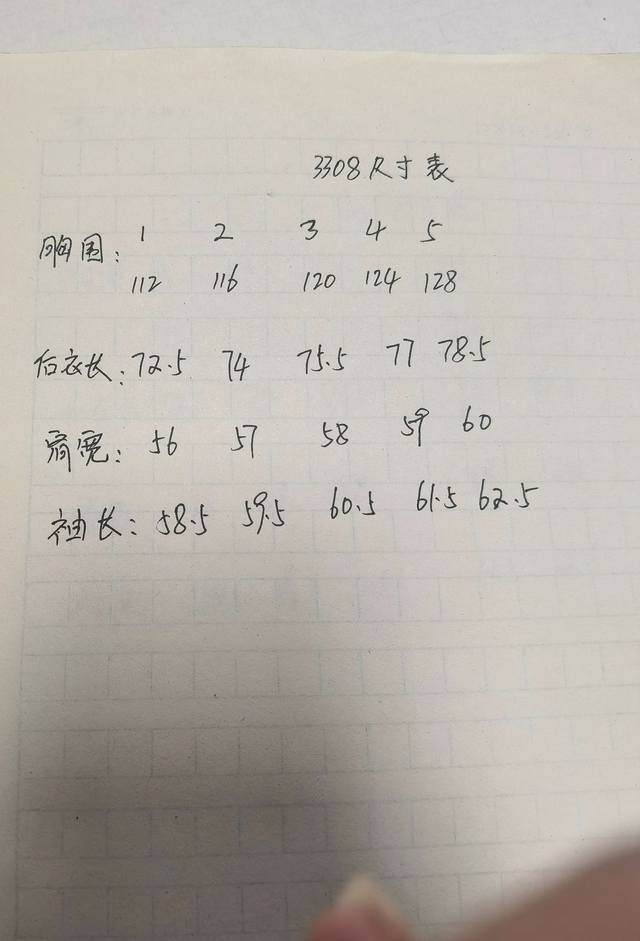 3308尺寸表
胸围: 1 2 3 4 5
112 116 120 124 128
后衣长: 72.5 74 75.5 77 78.5
肩宽: 56 57 58 59 60
袖长: 58.5 59.5 60.5 61.5 62.5